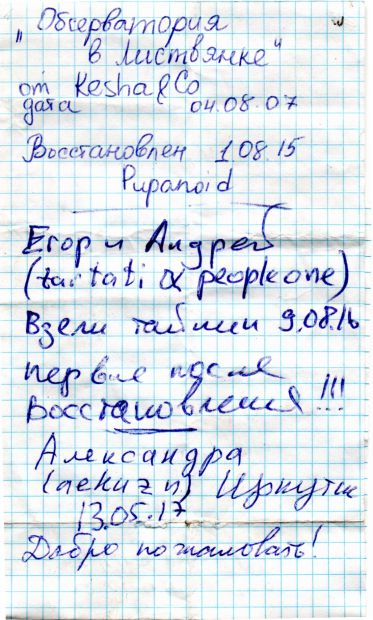 "Обсерватория
в Листвянке"
от Kesha&Co
дата 04.08.07
Восстановлен 1.08.15
Puranoid
Егор и Андрей
(tartati & peopleone)
Взели тайник 9.08.16
первые после
Восстановления!!!
Александра
Иркутск
13.05.17
Добро пожаловать!